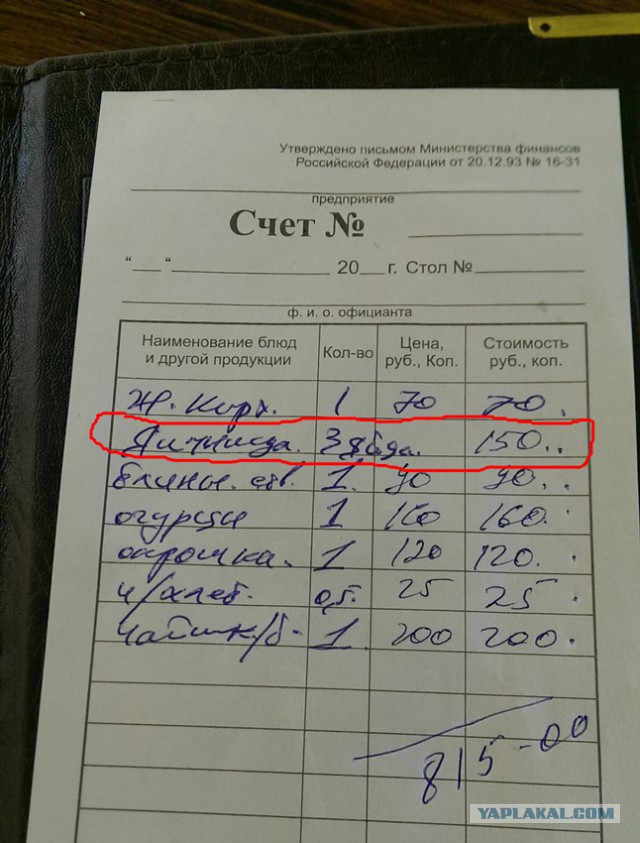 Утверждено письмом Министерства финансов
Российской Федерации от 20.12.93 № 16-31
предприятие
Счет №
"__ " 20__ г. Стол №
ф. и. о. официанта
Наименование блюд и другой продукции Кол-во Цена, руб., Коп. Стоимость руб., коп.
Ж. 1 70 70.
Яичница. 3 яйца. 150..
блины. 1. 90 90..
огурцы 1 160 160.
окрошка. 1 120 120.
ч/хлеб. 0,5. 25 25.
чайник/б- 1. 200 200.
815-00
YAPLAKAL.COM